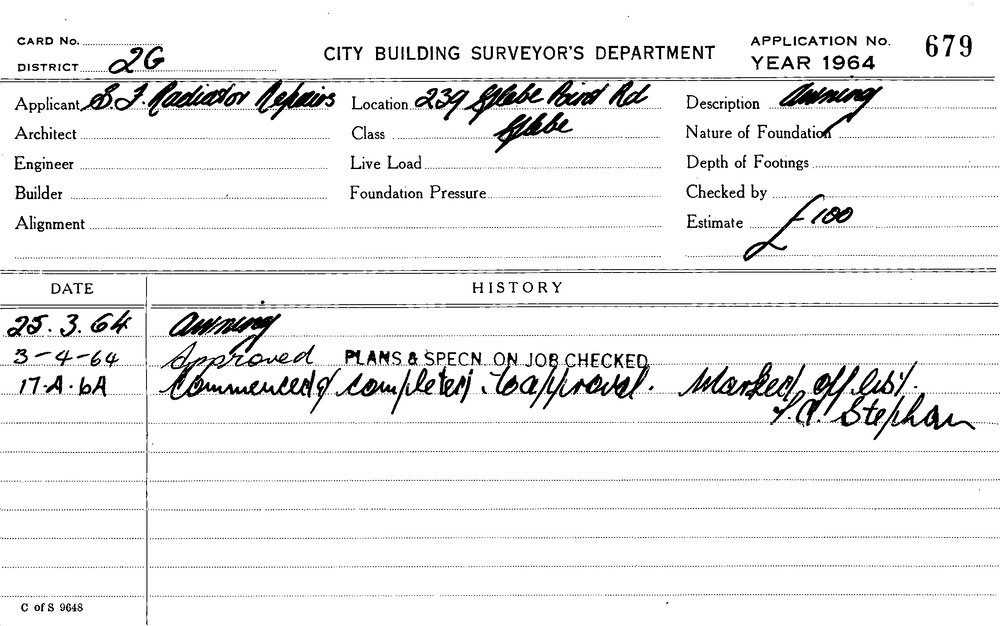 CARD No. CITY BUILDING SURVEYOR'S DEPARTMENT APPLICATION No. 679
DISTRICT 2G YEAR 1964
Applicant S. F. Radiator Repairs Location 239 Glebe Point Rd Description Awning
Architect Class Glebe Nature of Foundation
Engineer Live Load Depth of Footings
Builder Foundation Pressure Checked by
Alignment Estimate £100
DATE HISTORY
25.3.64 Awning
3-4-64 Approved PLANS & SPECN. ON JOB CHECKED
17.4.64 Commenced & completed to approval. Marked off list.
Stephan
C of S 9648